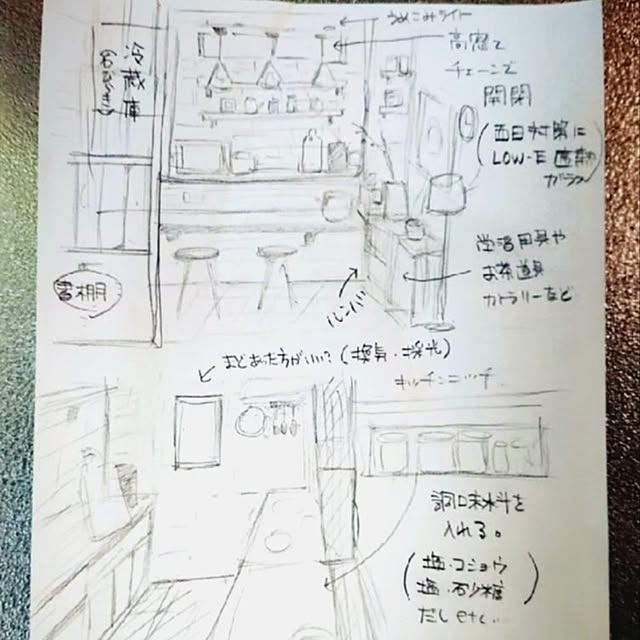 うめこみライト
冷蔵庫
高窓で
チェーンで
開閉
(西日対策に
LOW-E 遮熱
ガラス
生活用具や
お茶道具
カトラリーなど
書棚
ルンバ
まどあった方がいい？(換気・採光)
キッチンニッチ
調味料を
入れる。
(塩・コショウ
塩・砂糖)
だし etc...